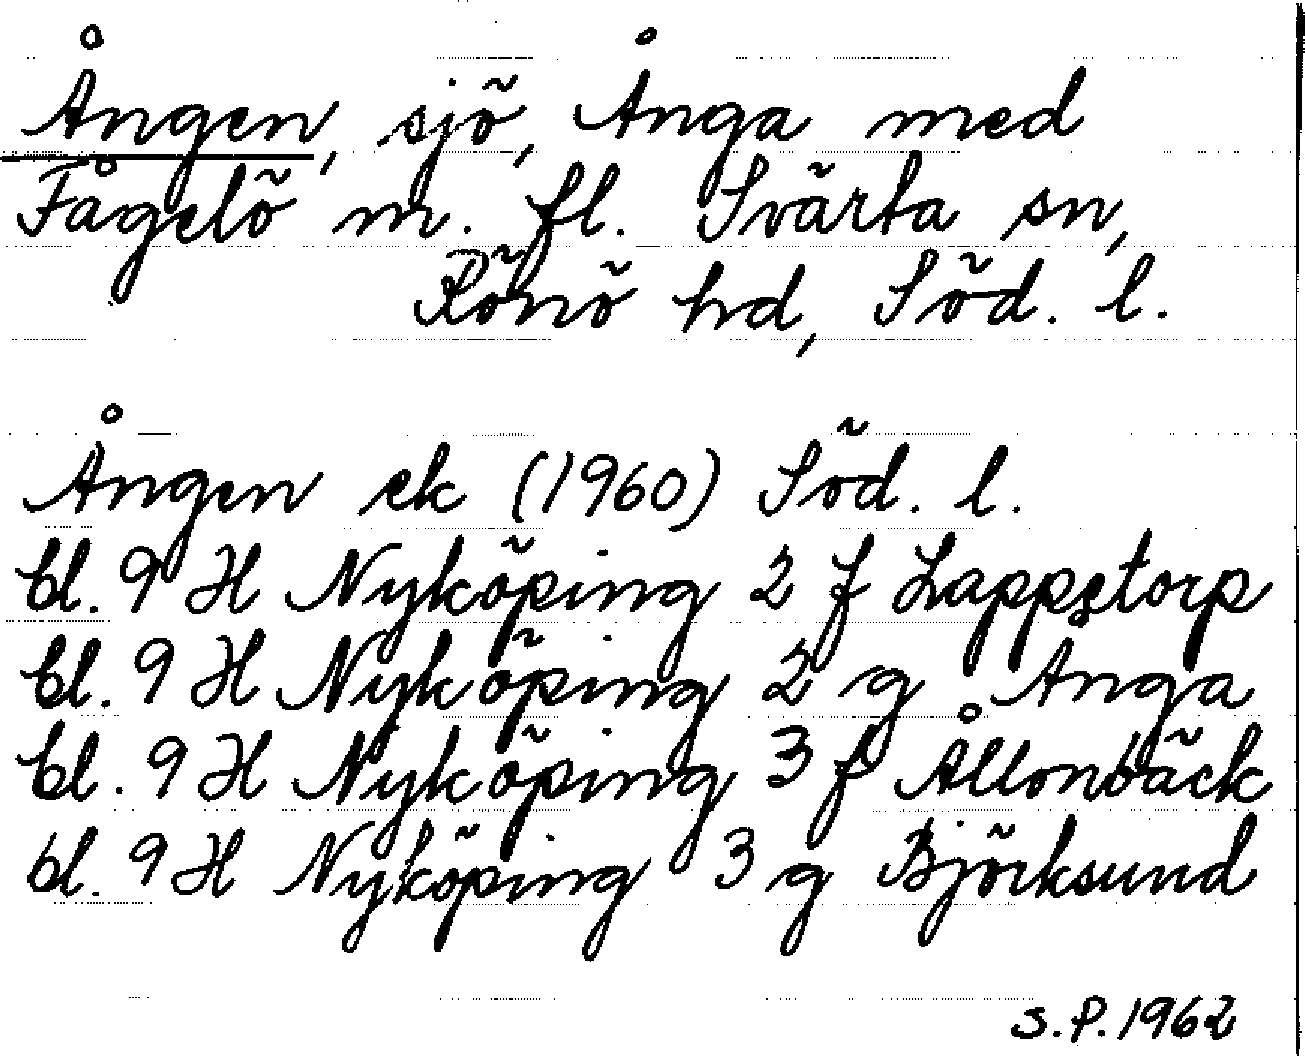 Ången, sjö, Ånga med
Fågelö m. fl. Svärta sn,
Rönö hd, Söd. l.
Ången ek (1960) Söd. l.
bl. 9 H Nyköping 2 f Lappetorp
bl. 9 H Nyköping 2 g Ånga
bl. 9 H Nyköping 3 f Ållonbäck
bl. 9 H Nyköping 3 g Björksund
S.P. 1962